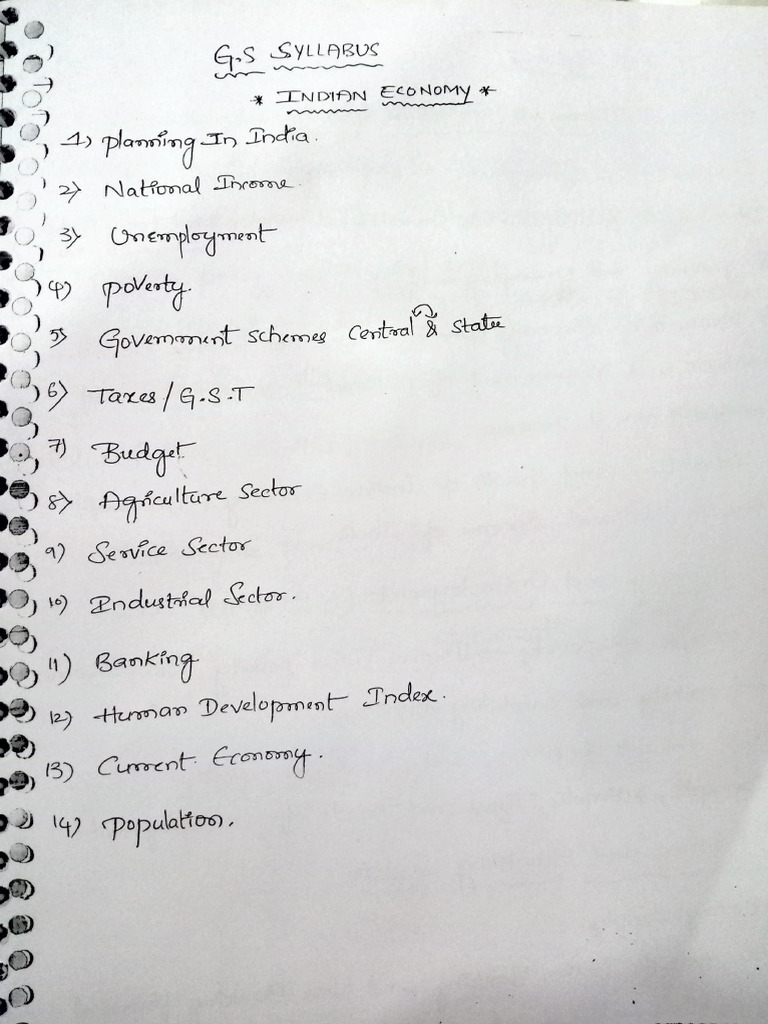 G.S SYLLABUS
* INDIAN ECONOMY *
1) Planning In India.
2) National Income
3) Unemployment
4) Poverty.
5) Government Schemes Central & State
6) Taxes/G.S.T
7) Budget
8) Agriculture Sector
9) Service Sector
10) Industrial Sector.
11) Banking
12) Human Development Index.
13) Current Economy.
14) Population.